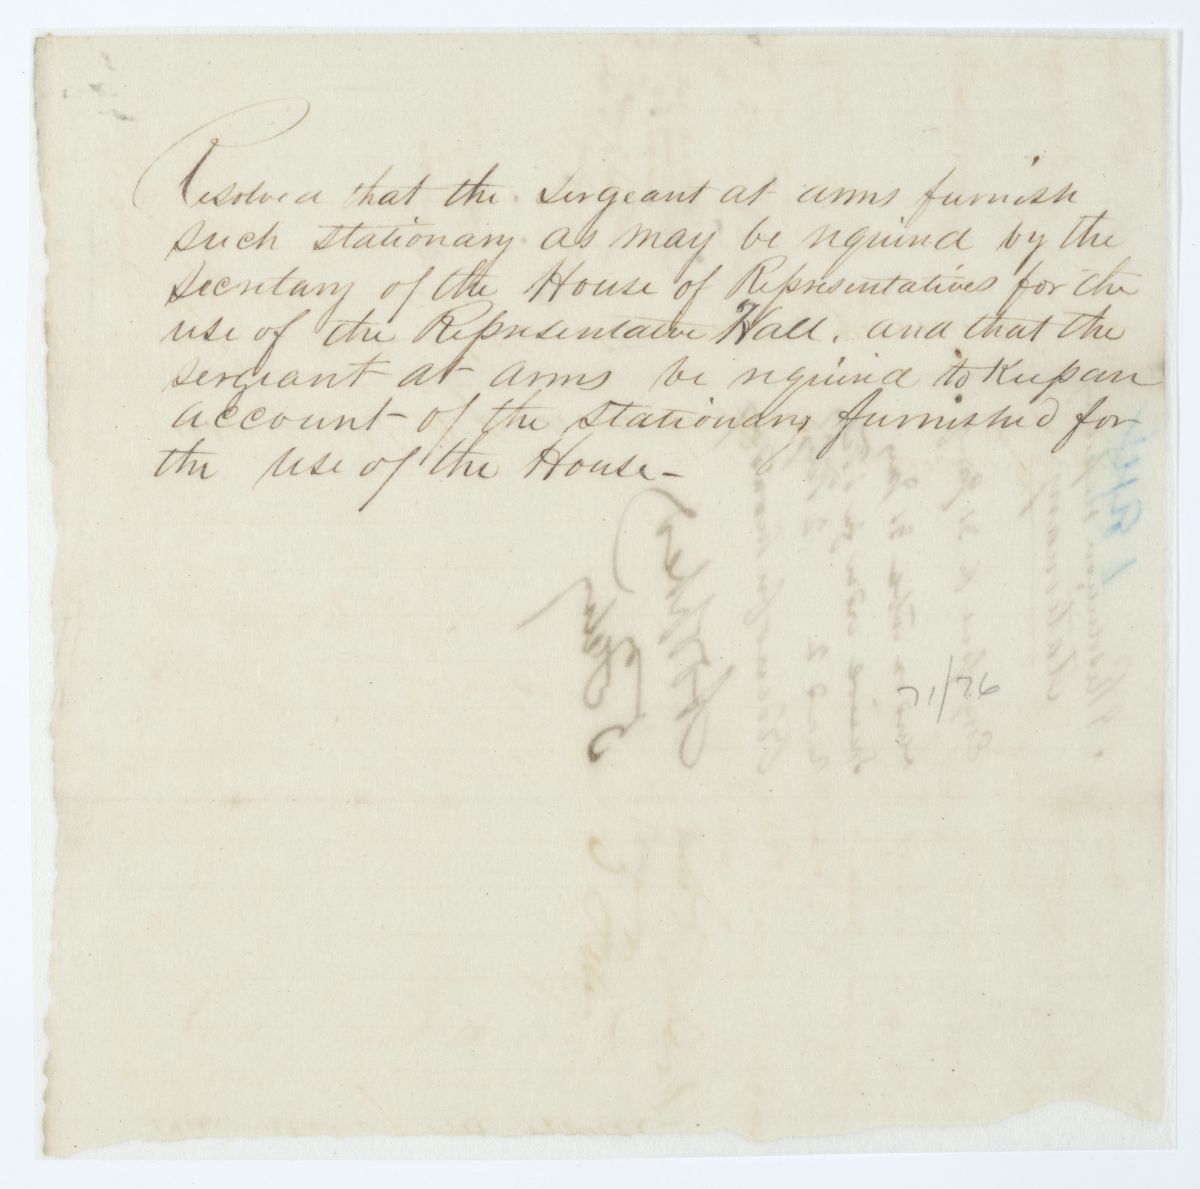 Resolved that the Sergeant at arms furnish
such stationary as may be required by the
Secretary of the House of Representatives for the
use of the Representative Hall. and that the
sergeant at arms be required to Keep an
account of the stationary furnished for
the use of the House -
71/76